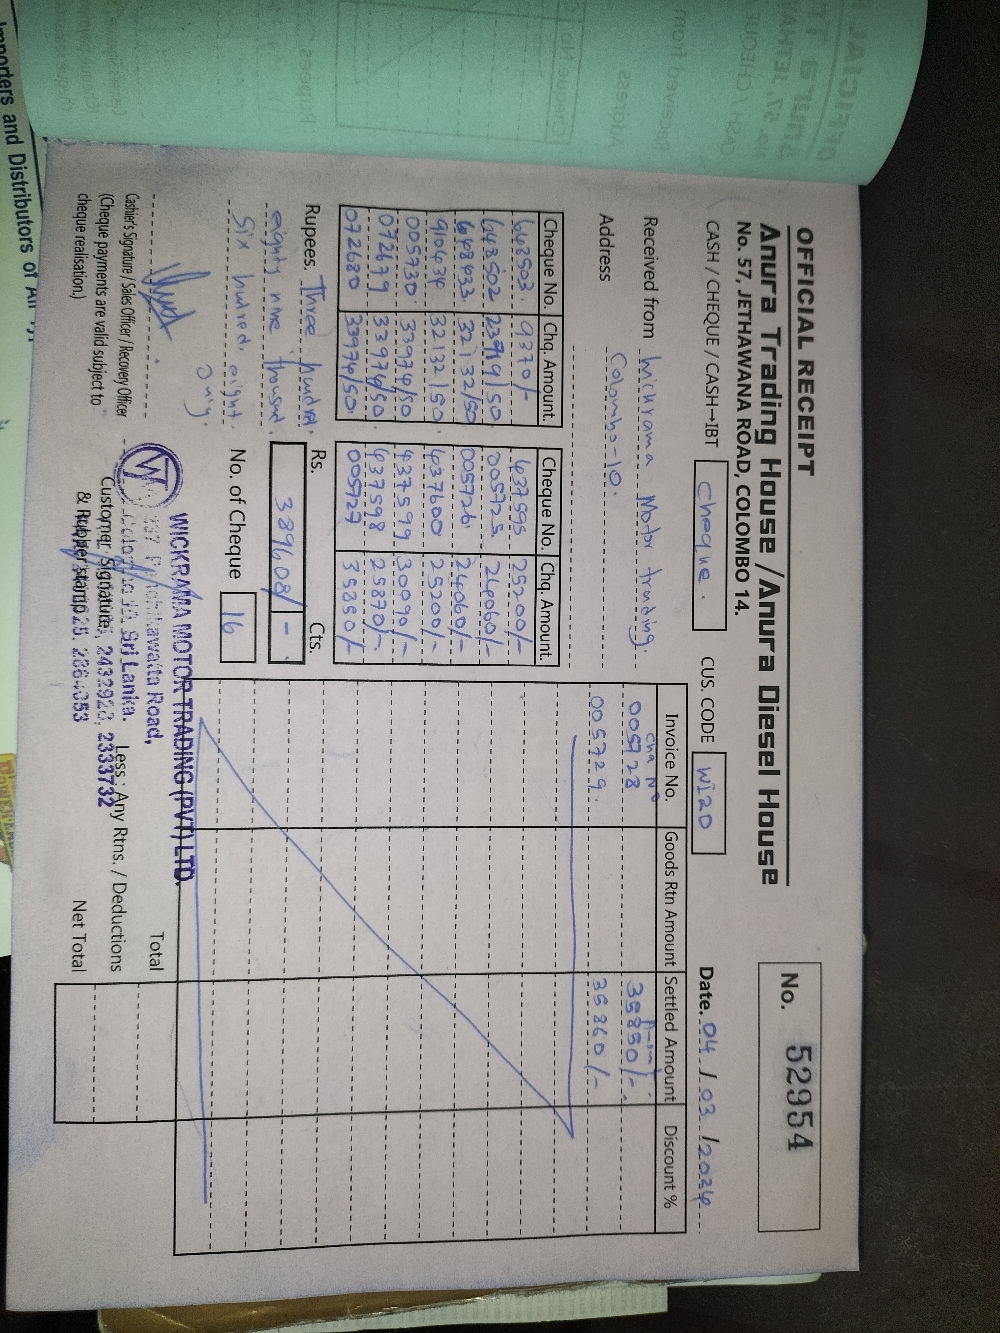 OFFICIAL RECEIPT
No. 52954
Anura Trading House / Anura Diesel House
No. 57, JETHAWANA ROAD, COLOMBO 14.
CASH / CHEQUE / CASH→IBT Cheque. CUS. CODE Wi20 Date. 04 / 03 / 2024
Received from Wickrama Motor trading.
Address Colombo-10.
Cheque No. Chq. Amount
668503. 9370/-
648502 23919/50
648433 32132/50
910434 32132/50.
005730 33974/50
072679 33976/50.
072680 33974/50.
Cheque No. Chq. Amount.
437595 25200/-
005725 24060/-
005726 24060/-
437600 25200/-
437599 30090/-
437598 25870/-
005727 35850/-
Invoice No. Goods Rtn Amount Settled Amount Discount %
Chq No
005728 35850/-
005729. 35860/-
Rupees. Three hundred.
eighty nine thousand
Six hundred, eight.
only.
Rs. Cts.
389608/-
No. of Cheque 16
Cashier's Signature / Sales Officer / Recovery Officer
(Cheque payments are valid subject to
cheque realisation.)
Customer Signature
& Rubber stamp
WICKRAMA MOTOR TRADING (PVT) LTD.
Road,
Sri Lanka.
2333732
Total
Less : Any Rtns. / Deductions
Net Total
Importers and Distributors of All